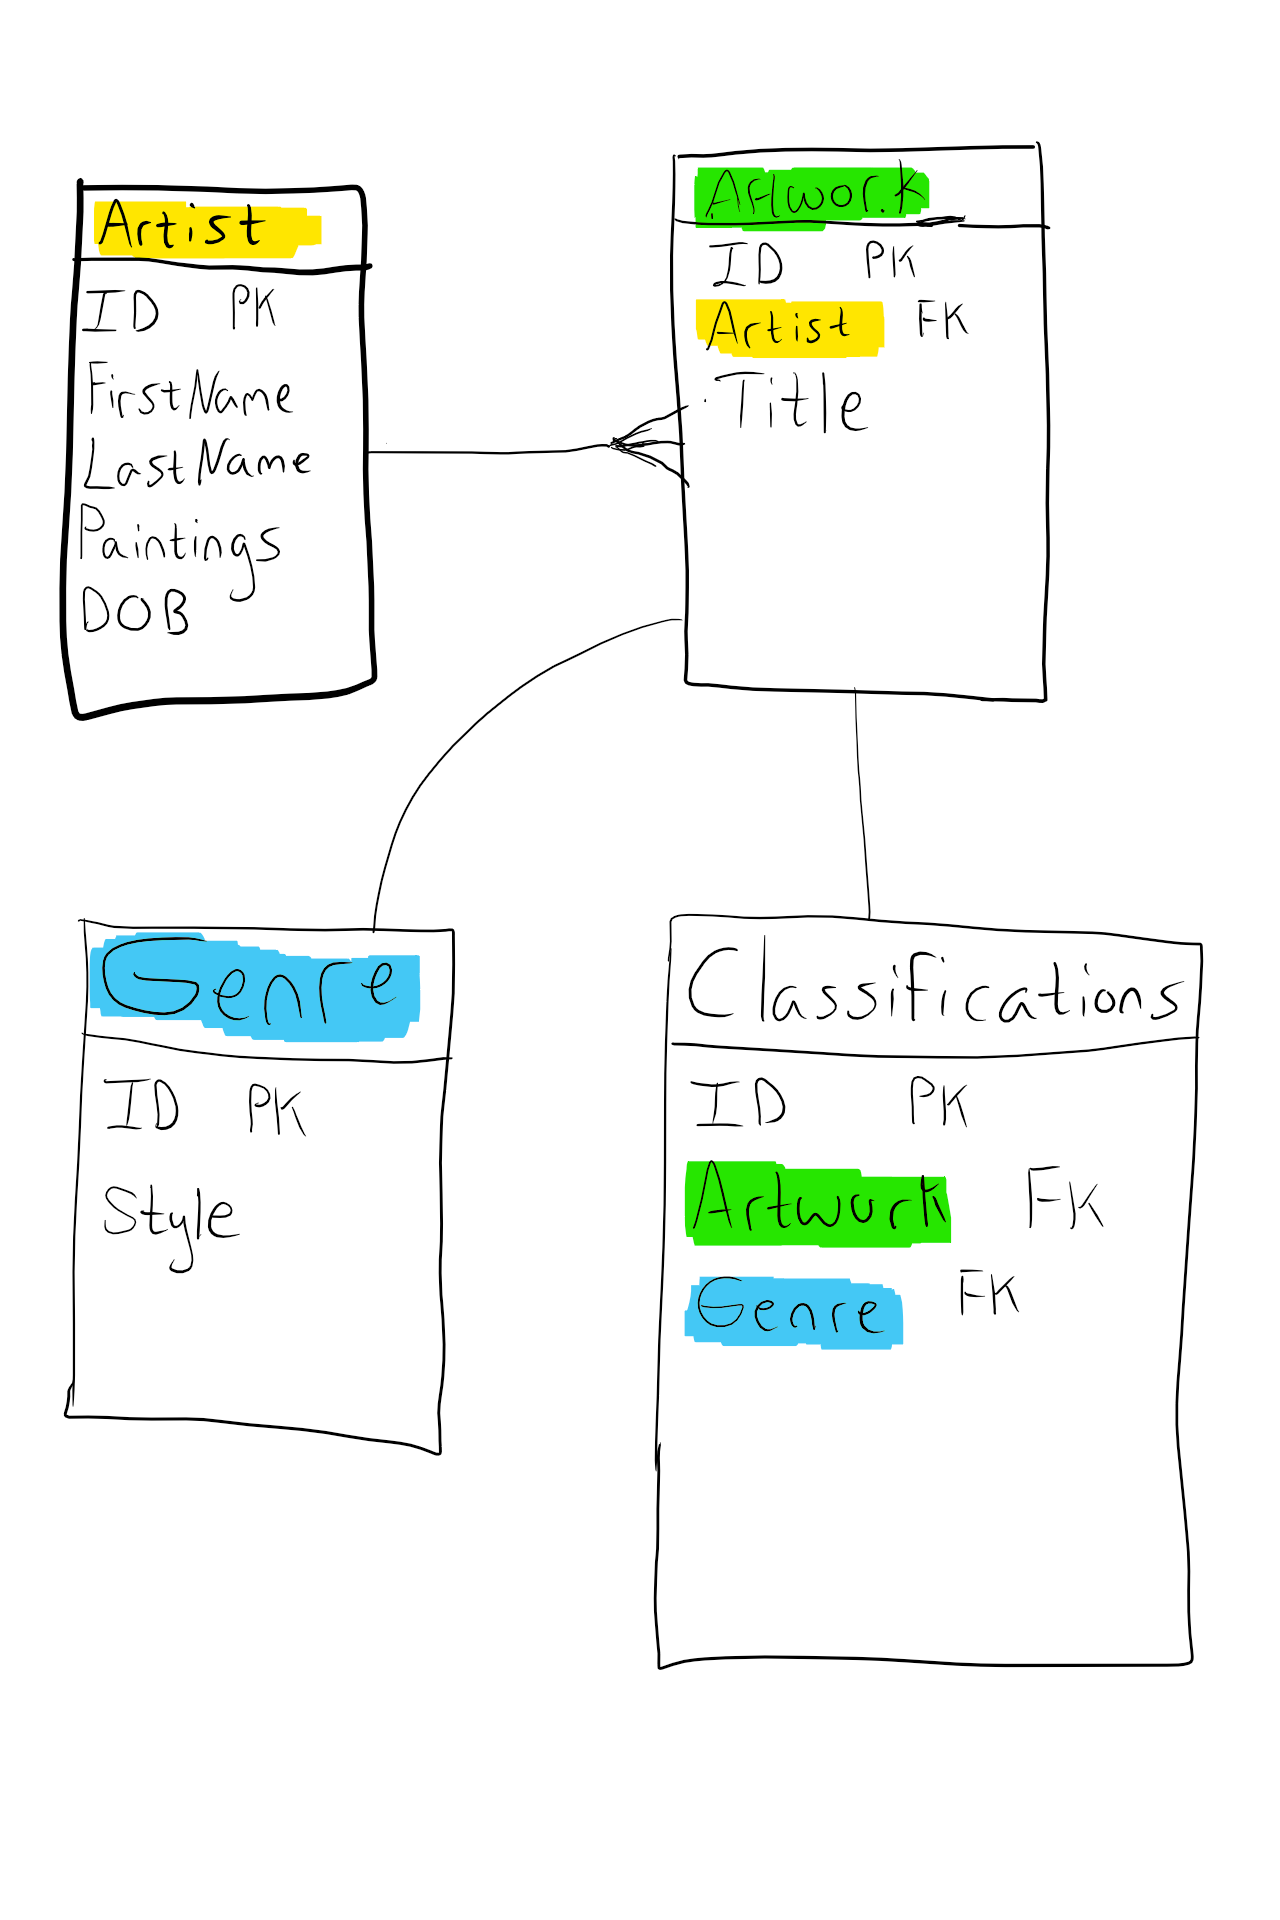 Artist
ID PK
FirstName
LastName
Paintings
DOB
Artwork
ID PK
Artist FK
Title
Genre
ID PK
Style
Classifications
ID PK
Artwork FK
Genre FK